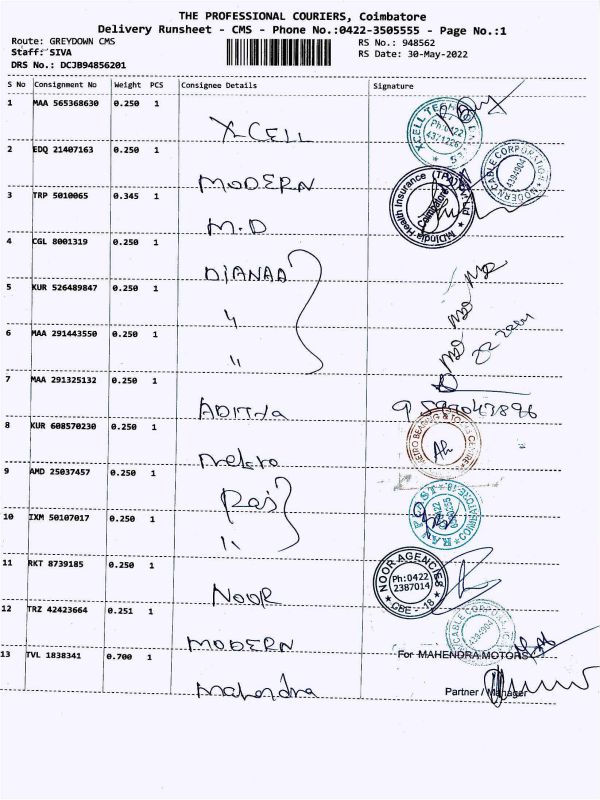 THE PROFESSIONAL COURIERS, Coimbatore
Delivery Runsheet - CMS - Phone No.:0422-3505555 - Page No.:1
Route: GREYDOWN CMS
RS No.: 948562
Staff: SIVA
RS Date: 30-May-2022
DRS No.: DCJB94856201
S No Consignment No Weight PCS Consignee Details Signature
1 MAA 565368630 0.250 1
XCELL
XCELL
Ph:0422
2 EDQ 21407163 0.250 1
MODERN
MODERN CABLE CORPORATION
4394904
3 TRP 5010065 0.345 1
M.D
MDIndia Health Insurance (TPA) Pvt Ltd
Coimbatore
4 CGL 8001319 0.250 1
DIANAA
5 KUR 526489847 0.250 1
"
6 MAA 291443550 0.250 1
"
7 MAA 291325132 0.250 1
ADITHA
8 KUR 608570230 0.250 1
Metro
METRO
9 AMD 25037457 0.250 1
Raj
10 IXM 50107017 0.250 1
"
COIMBATORE-18
11 RKT 8739185 0.250 1
NOOR
NOOR AGENCIES
Ph:0422
2387014
CBE - 18
12 TRZ 42423664 0.251 1
MODERN
CABLE
4394904
13 TVL 1838341 0.700 1
Mahendra
For MAHENDRA MOTORS
Partner / Manager